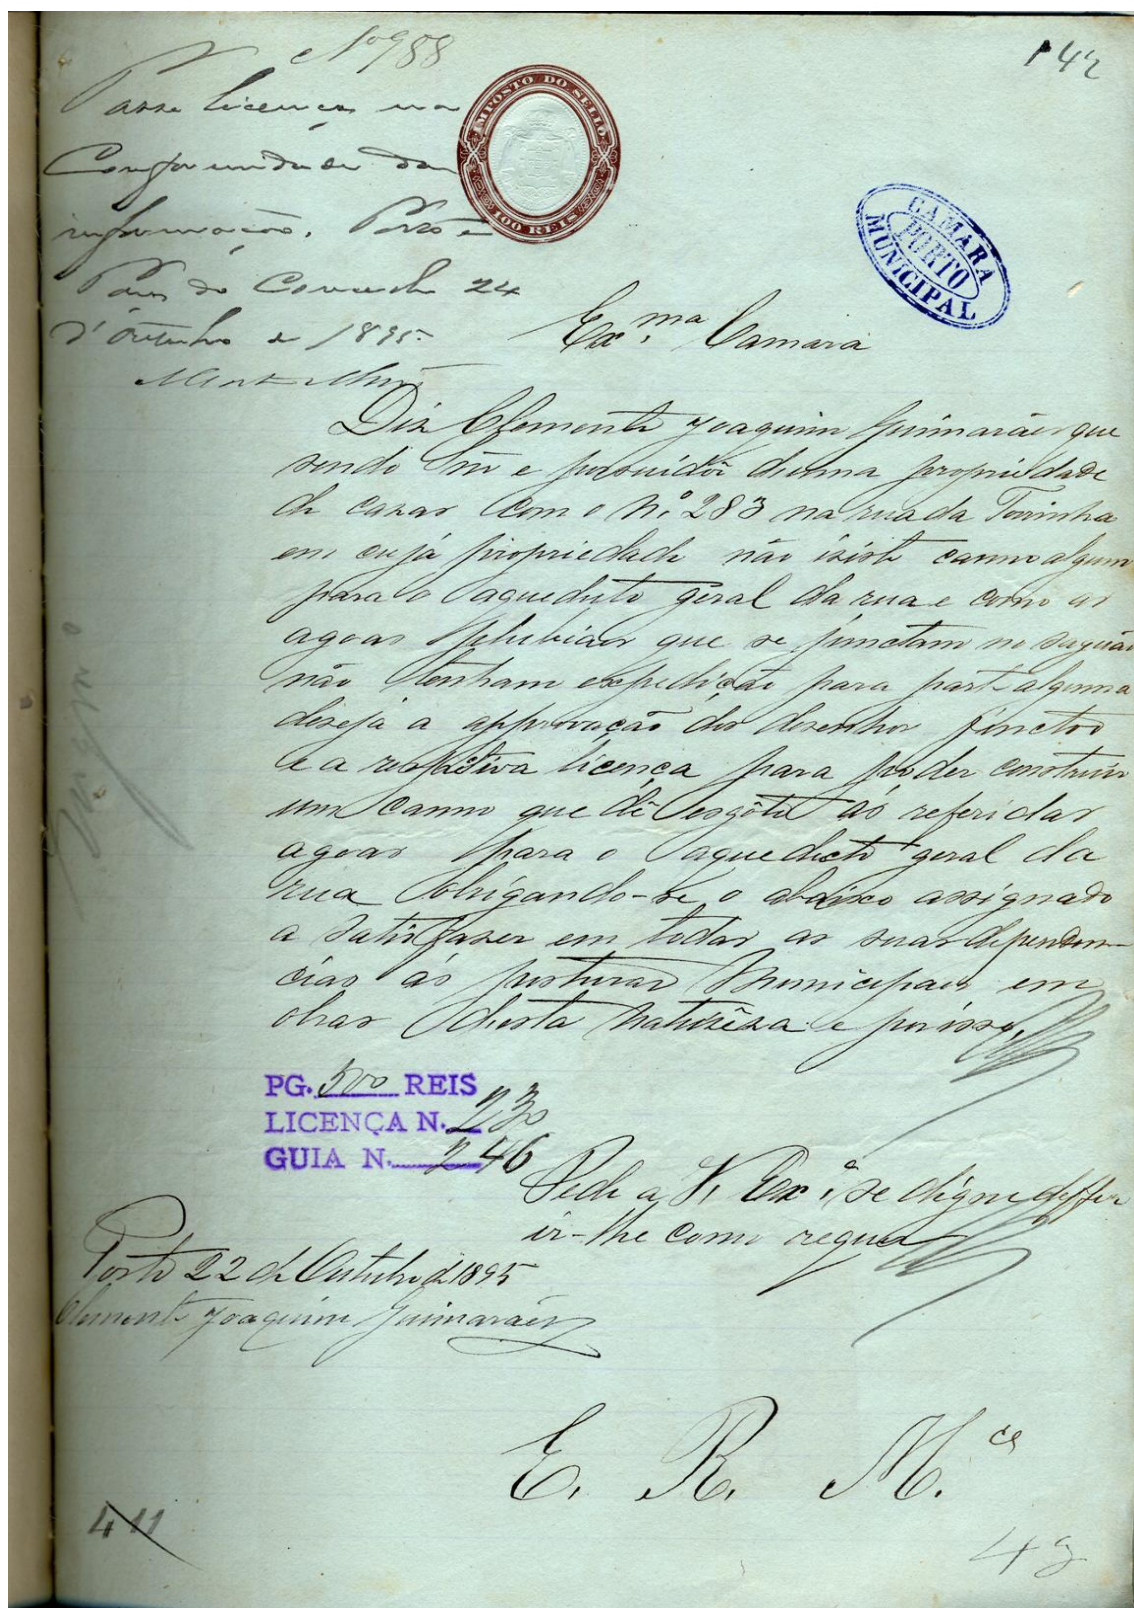 Nº 988
142
Passe licença na
Conformidade da
informação. Porto e
Paços do Concelho 24
d'Outubro de 1895.
IMPOSTO DO SELLO
100 REIS
CAMARA
PORTO
MUNICIPAL
Exma. Camara
Diz Clemente Joaquim Guimarães que
sendo Snr e possuidôr d'uma propriedade
de cazas com o Nº 283 na rua da Torrinha
em cujá propriedade não isiste canno algum
para o aqueduto géral da rua e como as
agoas plubiaes que se junctam no saguão
não tenham expedição para parte alguma
deseja a approvação dos desenhos junctos
e a respectiva licença para poder construir
um canno que dê esgôto ás referidas
agoas para o aqueducto geral da
rua obrigando-se o abaixo assignado
a satisfazer em todas as suas dependen-
cias ás posturas Municipaes em
obras desta naturêza e porisso,
PG. 500 REIS
LICENÇA N. 230
GUIA N. 246
Pede a V. Exª. se digne deffer
ir-lhe como requer
Porto 22 de Outubro de 1895
Clemente Joaquim Guimarães
E. R. M.ce
411